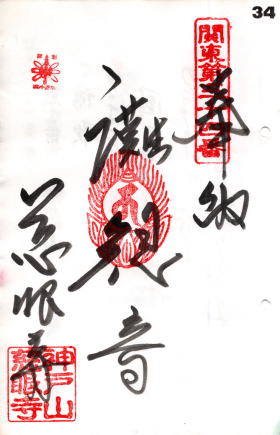 34
関東第三十四番
奉納
観音
慈眼寺
神戸山
慈眼寺